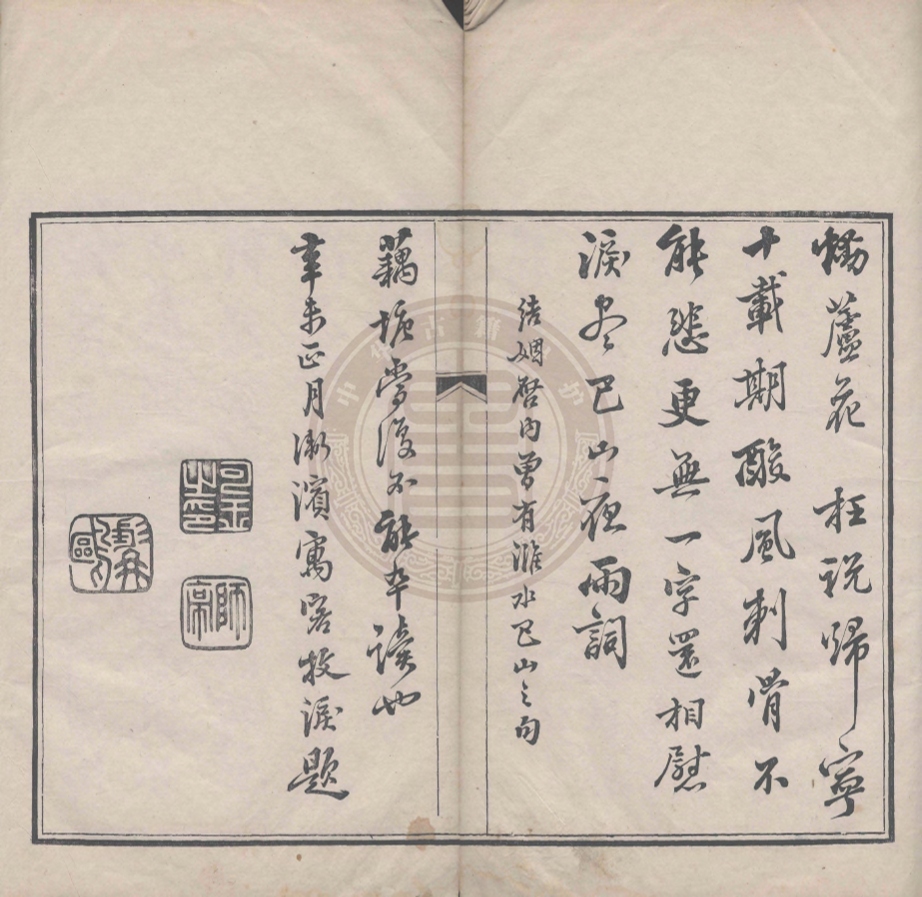 蘆花 枉説歸寧
十載期酸風刺骨不
能悲更無一字還相慰
淚盡巴山夜雨詞
結姻啓內曾有濰水巴山之句
藕塘當復不能卒讀也
辛未正月浙濱寓客抆淚題
師